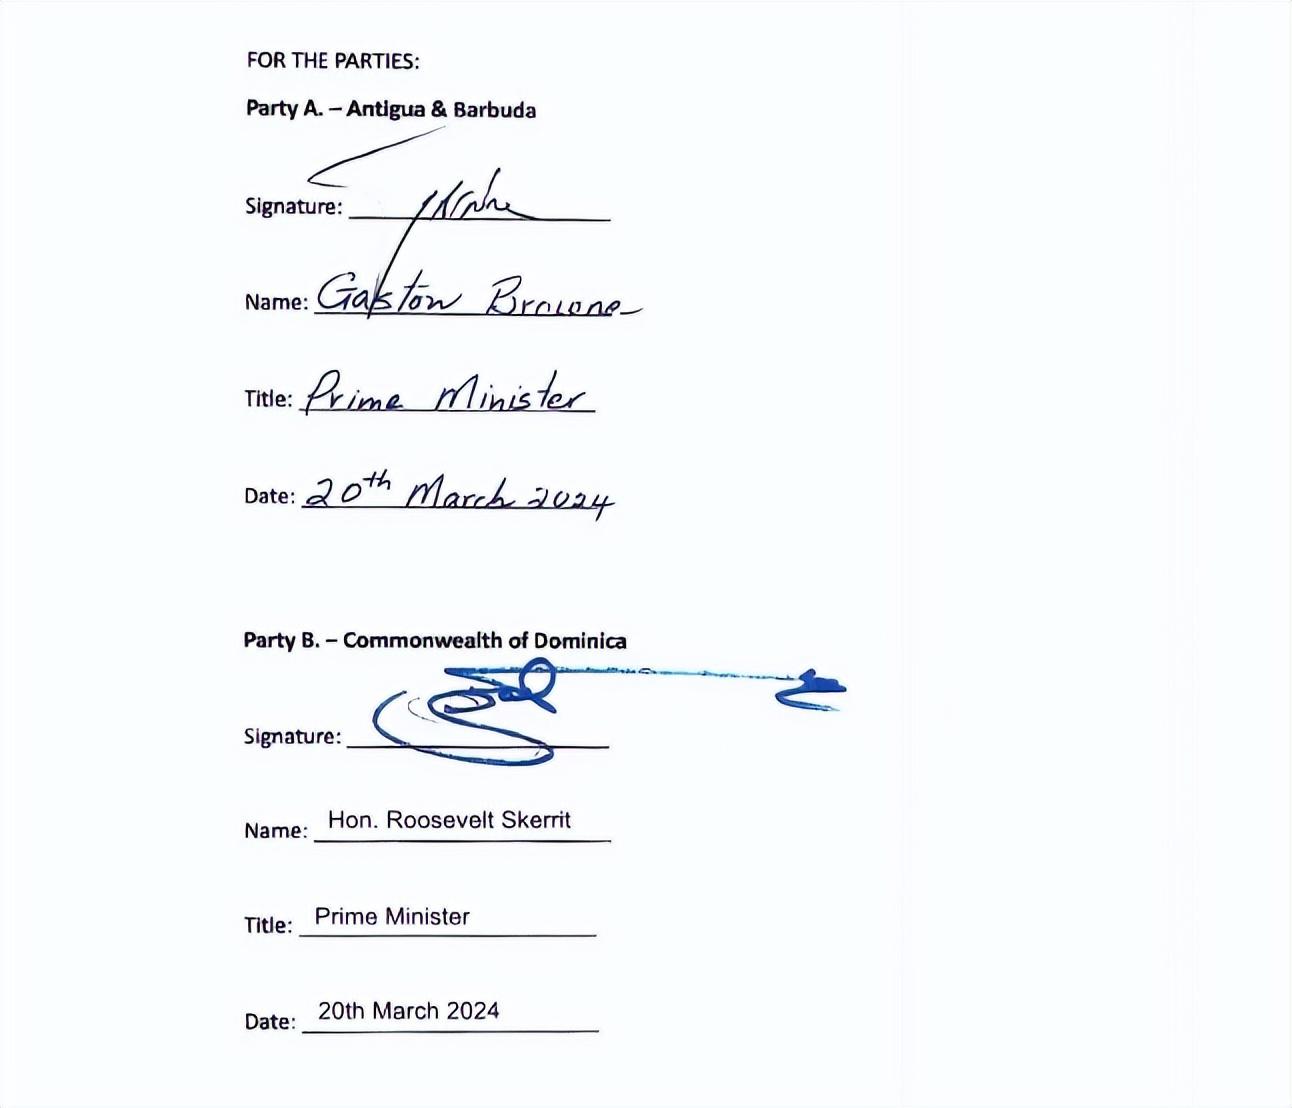 FOR THE PARTIES:
Party A. – Antigua & Barbuda
Signature:
Name: Gaston Browne
Title: Prime Minister
Date: 20th March 2024
Party B. – Commonwealth of Dominica
Signature:
Name: Hon. Roosevelt Skerrit
Title: Prime Minister
Date: 20th March 2024